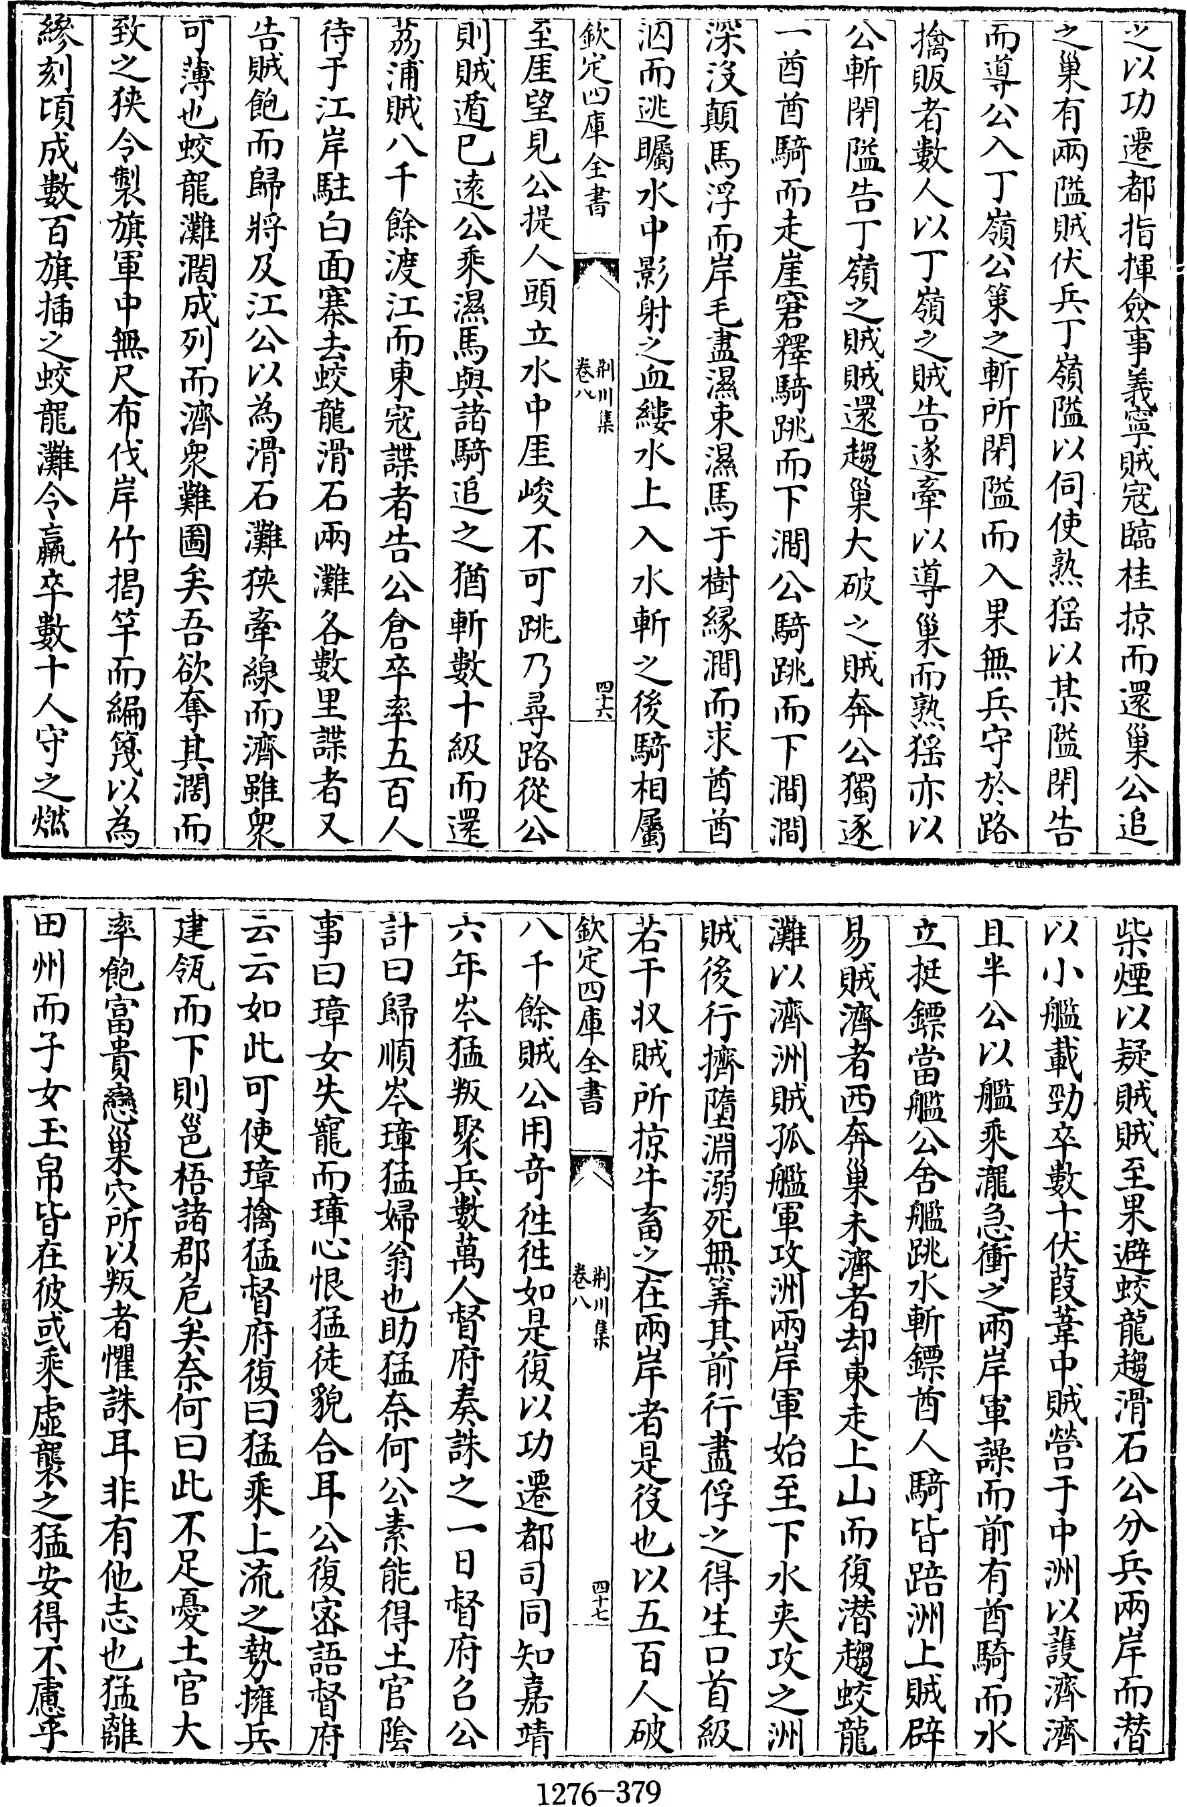 之以功遷都指揮僉事義寧賊寇臨桂掠而還巢公追
之巢有兩隘賊伏兵丁嶺隘以伺使熟猺以某隘閉告
而導公入丁嶺公策之斬所閉隘而入果無兵守於路
擒販者數人以丁嶺之賊告遂牽以導巢而熟猺亦以
公斬閉隘告丁嶺之賊賊還趨巢大破之賊奔公獨逐
一酋酋騎而走崖窘釋騎跳而下澗公騎跳而下澗澗
深沒顛馬浮而岸毛盡濕束濕馬于樹緣澗而求酋酋
泅而逃矚水中影射之血縷水上入水斬之後騎相屬
欽定四庫全書
荆川集
卷八
四十六
至厓望見公提人頭立水中厓峻不可跳乃尋路從公
則賊遁已遠公乘濕馬與諸騎追之猶斬數十級而還
荔浦賊八千餘渡江而東寇諜者告公倉卒率五百人
待于江岸駐白面寨去蛟龍滑石兩灘各數里諜者又
告賊飽而歸將及江公以為滑石灘狹牽線而濟雖衆
可薄也蛟龍灘濶成列而濟衆難圖矣吾欲奪其濶而
致之狹令製旗軍中無尺布伐岸竹揭竿而編篾以為
縿刻頃成數百旗插之蛟龍灘令羸卒數十人守之燃
柴煙以疑賊賊至果避蛟龍趨滑石公分兵兩岸而潛
以小艦載勁卒數十伏葭葦中賊營于中洲以護濟濟
且半公以艦乘瀧急衝之兩岸軍譟而前有酋騎而水
立挺鏢當艦公舍艦跳水斬鏢酋人騎皆踣洲上賊辟
易賊濟者西奔巢未濟者却東走上山而復潛趨蛟龍
灘以濟洲賊孤艦軍攻洲兩岸軍始至下水夾攻之洲
賊後行擠墮淵溺死無筭其前行盡俘之得生口首級
若干收賊所掠牛畜之在兩岸者是役也以五百人破
欽定四庫全書
荆川集
卷八
四十七
八千餘賊公用奇徃徃如是復以功遷都司同知嘉靖
六年岑猛叛聚兵數萬人督府奏誅之一日督府召公
計曰歸順岑璋猛婦翁也助猛奈何公素能得土官陰
事曰璋女失寵而璋心恨猛徒貌合耳公復密語督府
云云如此可使璋擒猛督府復曰猛乘上流之勢擁兵
建瓴而下則邕梧諸郡危矣奈何曰此不足憂土官大
率飽富貴戀巢穴所以叛者懼誅耳非有他志也猛離
田州而子女玉帛皆在彼或乘虛襲之猛安得不慮乎
1276-379